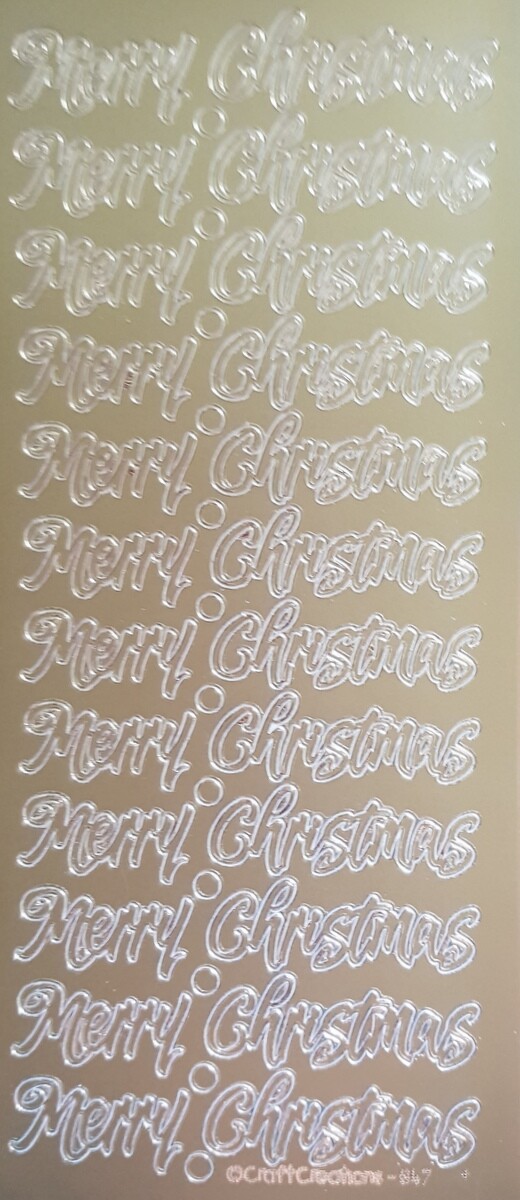 Merry Christmas
Merry Christmas
Merry Christmas
Merry Christmas
Merry Christmas
Merry Christmas
Merry Christmas
Merry Christmas
Merry Christmas
Merry Christmas
Merry Christmas
Merry Christmas
©CraftCreations - 847